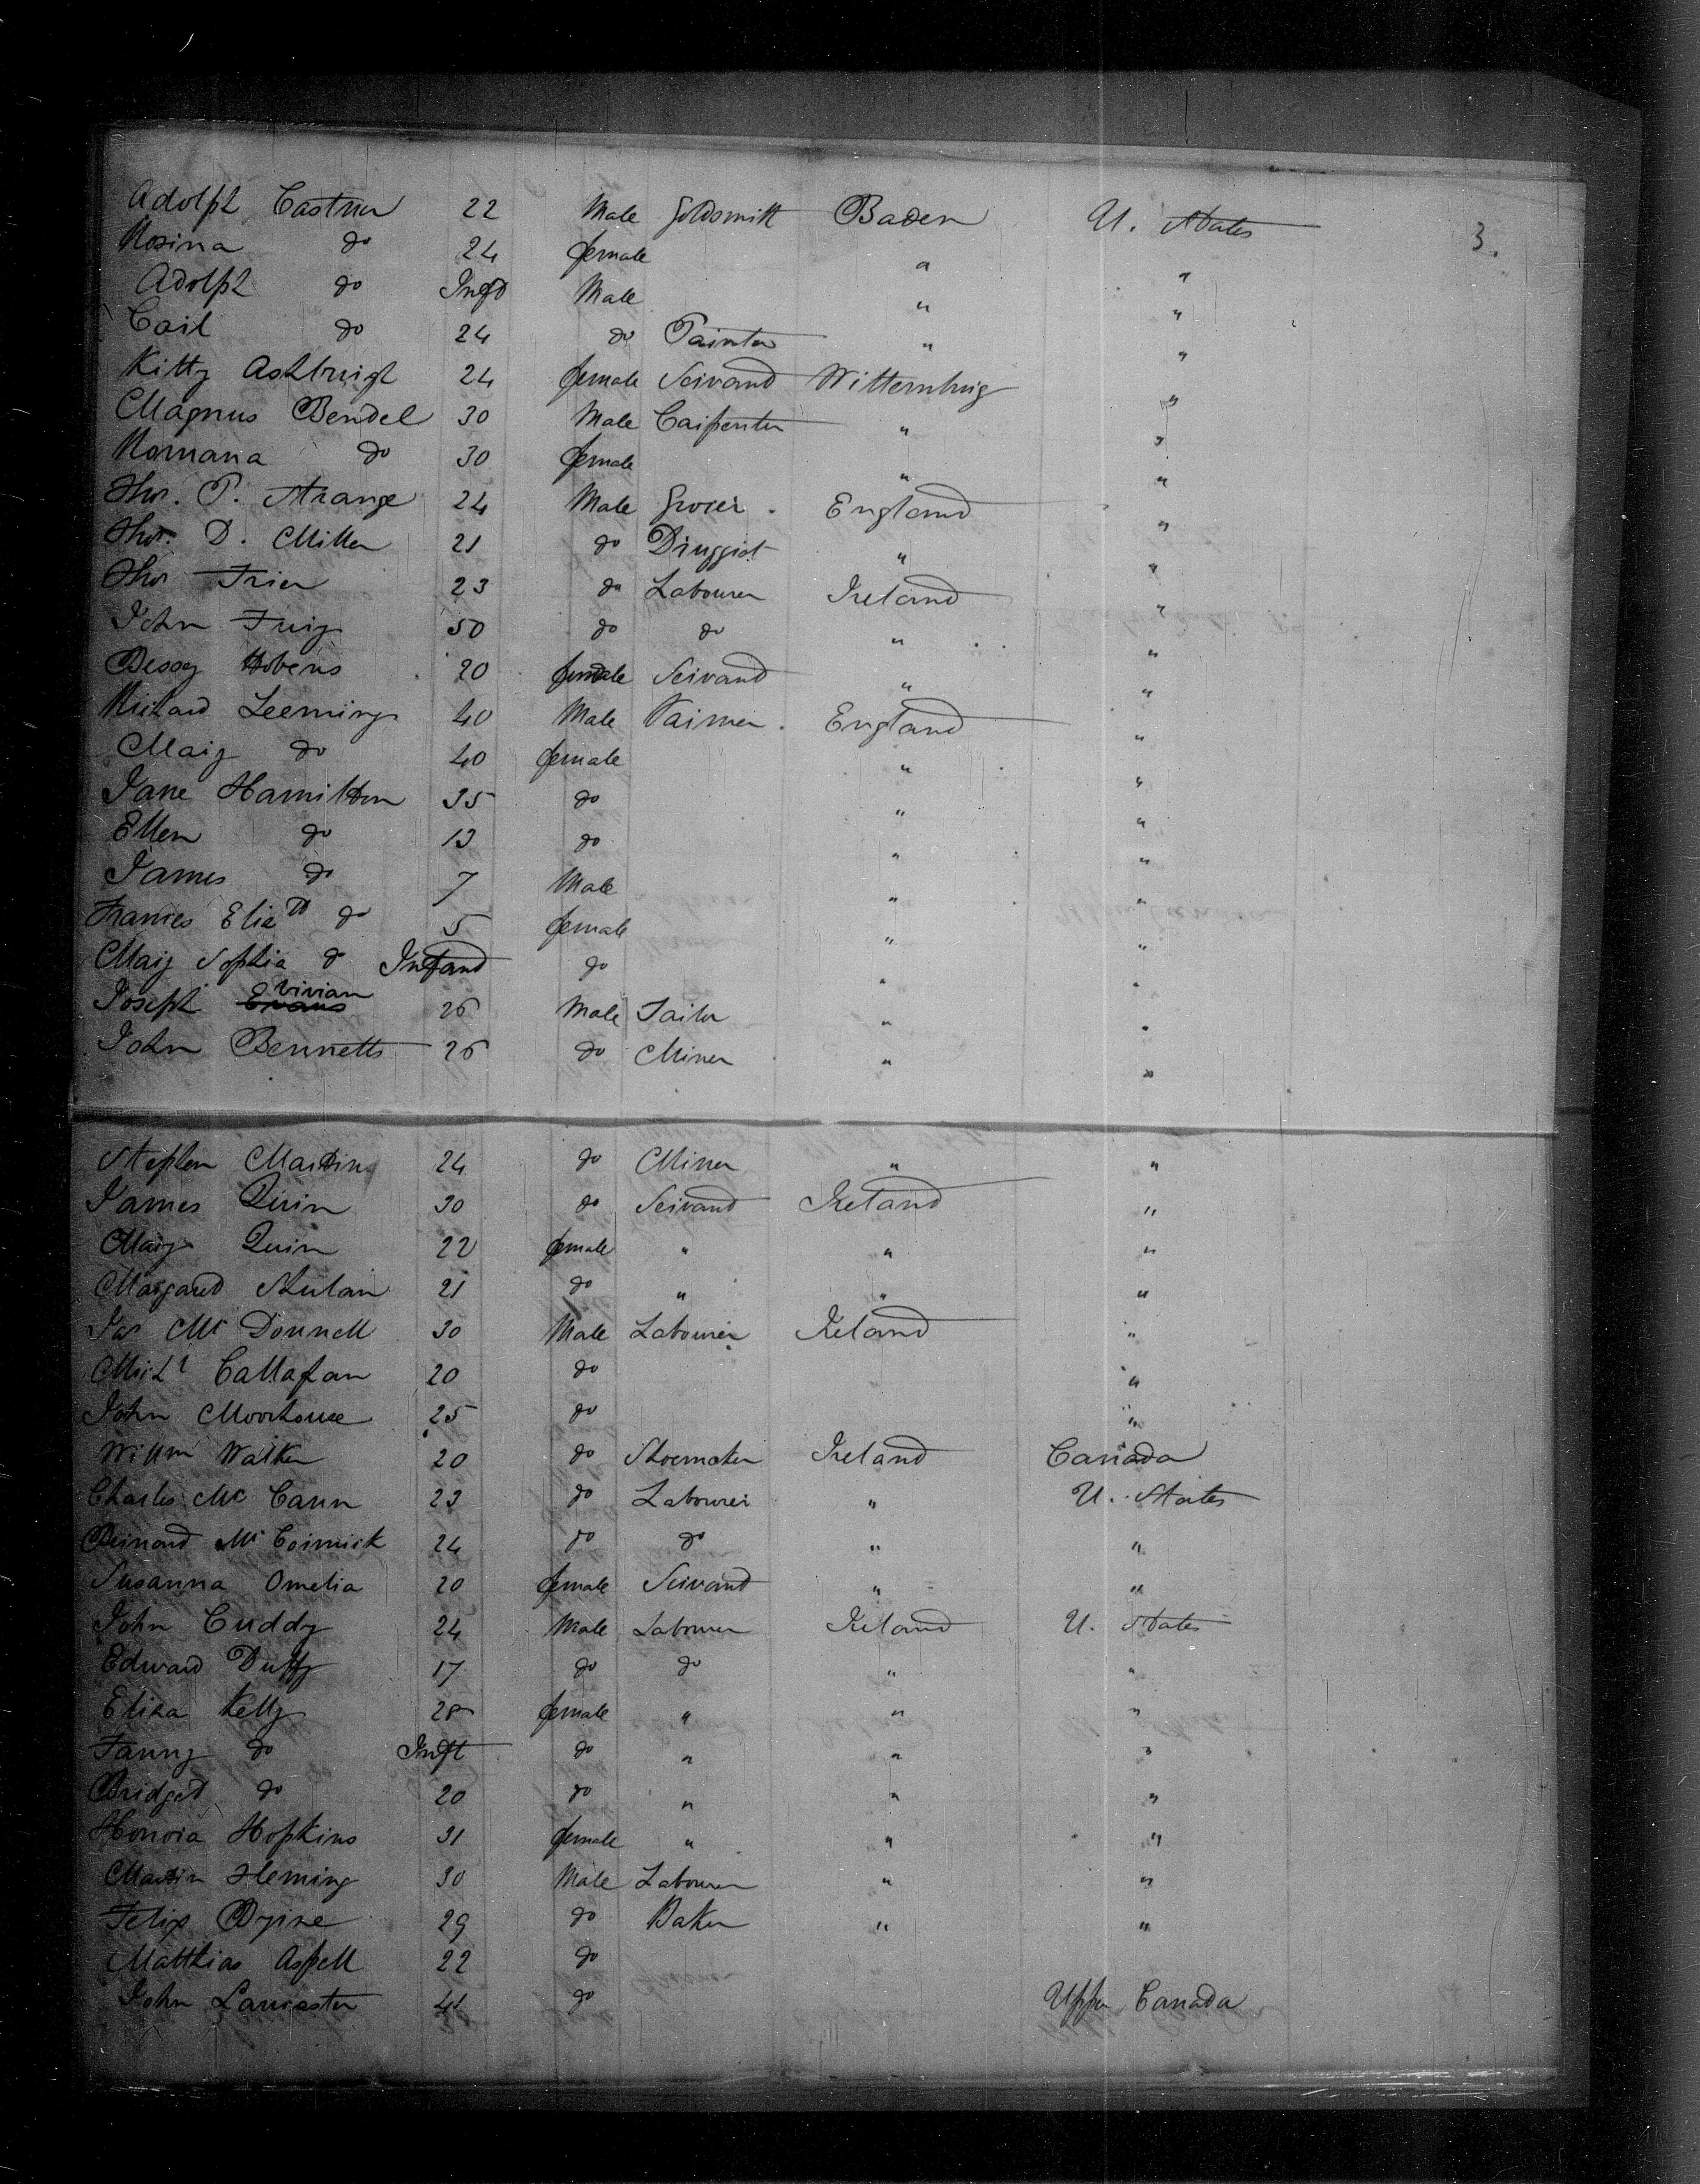 Adolph Castner 22 Male Goldsmith Baden U. States 3.
Rosina do 24 female " "
Adolph do Inft Male " "
Carl do 24 do Painter " "
Kitty 24 female Servant "
Magnus Bendel 30 Male Carpenter " "
Romana do 30 female " "
Thos. P. Strange 24 Male Grocer England "
Thos. D. Miller 21 do Druggist " "
Thos 23 do Labourer Ireland "
John 50 do do " "
Bessy 20 female Servant " "
Richard Leeming 40 Male England "
Mary do 40 female " "
Jane Hamilton 35 do " "
Ellen do 13 do " "
James do 7 Male " "
Frances Elizth do 5 female " "
Mary Sophia do Infant do " "
Joseph Vivian 26 Male Tailor " "
John Bennetts 26 do Miner " "
Stephen Martin 24 do Miner " "
James Quin 30 do Servant Ireland "
Mary Quin 22 female " " "
Margaret 21 do " " "
Jas Mc Donnell 30 Male Labourer Ireland "
Michl Callahan 20 do "
John Moorhouse 25 do "
Willm Walker 20 do Shoemaker Ireland Canada
Charles Mc Cann 23 do Labourer " U. States
Bernard Mc Cormick 24 do do " "
Susanna Omelia 20 female Servant " "
John Cuddy 24 Male Labourer Ireland U. States
Edward Duffy 17 do do " "
Eliza Kelly 28 female " " "
Fanny do Inft do " " "
Bridget do 20 do " " "
Honora Hopkins 31 female " " "
Martin Fleming 30 Male Labourer " "
Felix Byrne 29 do Baker " "
Matthias Aspell 22 do
John Lancaster 41 do Upper Canada